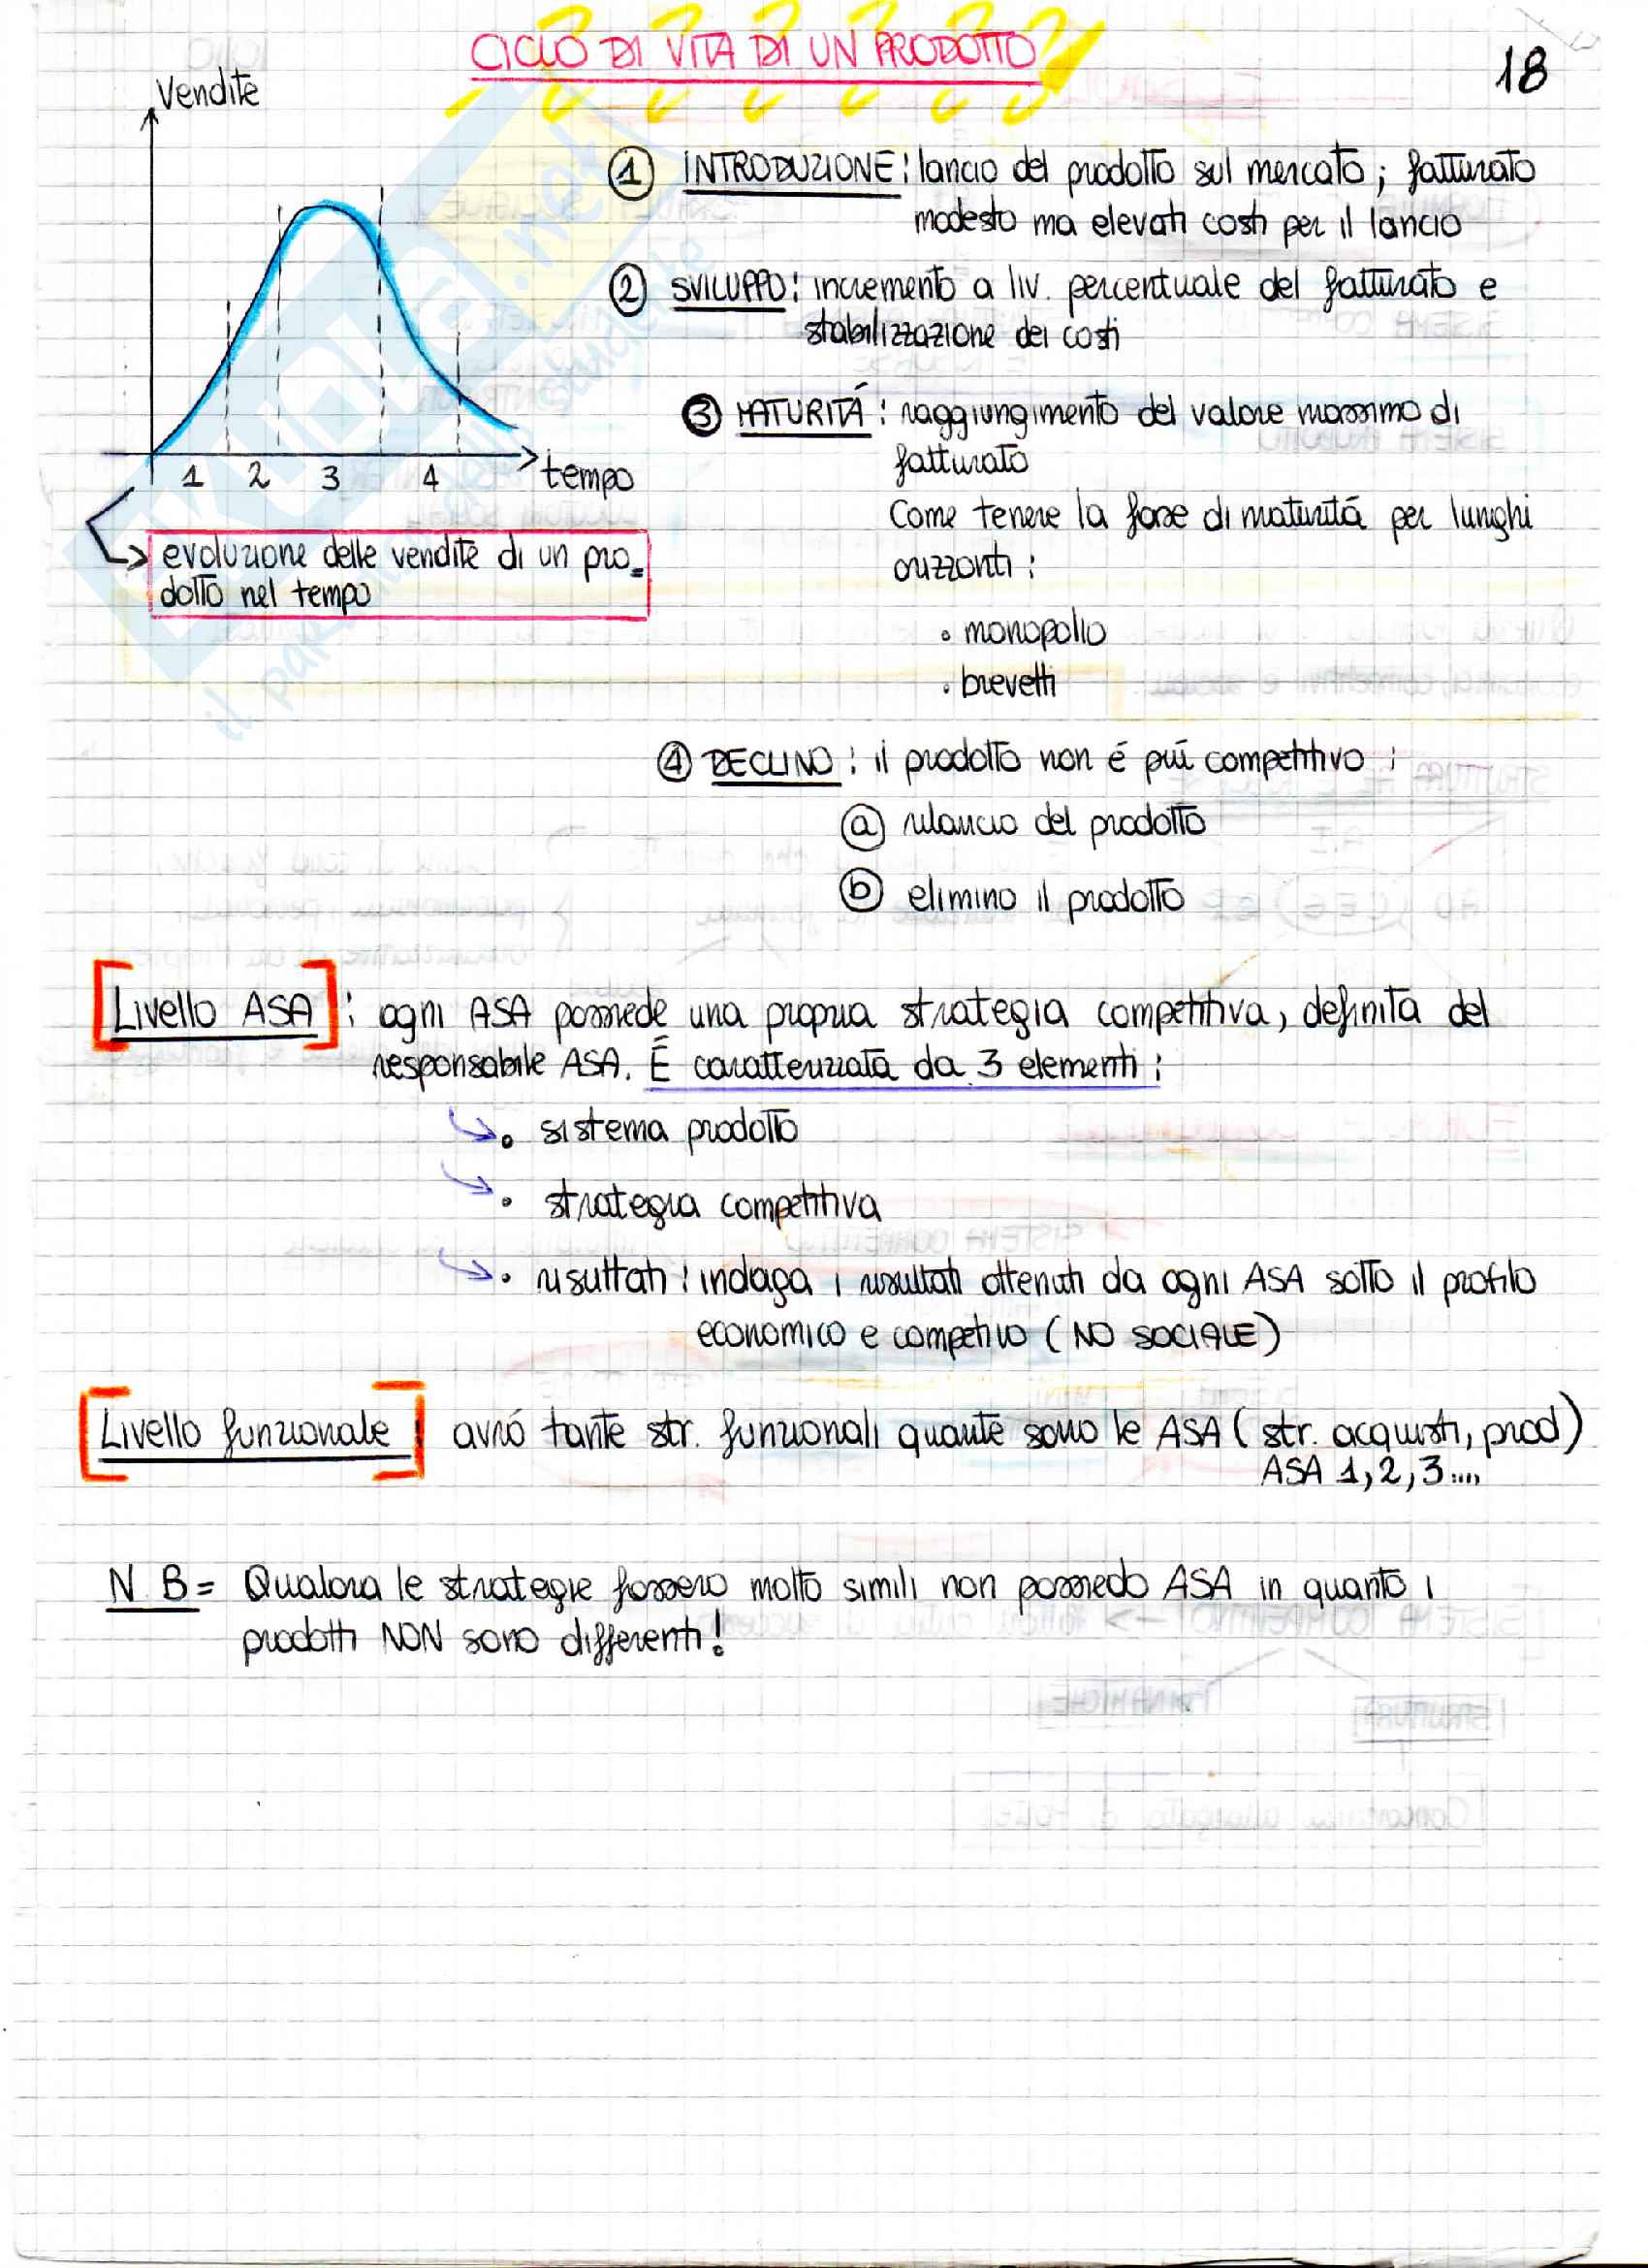 CICLO DI VITA DI UN PRODOTTO
18
Vendite
1 2 3 4 tempo
evoluzione delle vendite di un pro=
dotto nel tempo
① INTRODUZIONE: lancio del prodotto sul mercato; fatturato
modesto ma elevati costi per il lancio
② SVILUPPO: incremento a liv. percentuale del fatturato e
stabilizzazione dei costi
③ MATURITÁ: raggiungimento del valore massimo di
fatturato
Come tenere la fase di maturitá per lunghi
orizzonti:
• monopolio
• brevetti
④ DECLINO: il prodotto non é puí competitivo:
ⓐ rilancio del prodotto
ⓑ elimino il prodotto
Livello ASA: ogni ASA possiede una propria strategia competitiva, definita del
responsabile ASA. É caratterizzata da 3 elementi:
• sistema prodotto
• strategia competitiva
• risultati: indaga i risultati ottenuti da ogni ASA sotto il profilo
economico e competivo (NO SOCIALE)
Livello funzionale: avró tante str. funzionali quante sono le ASA (str. acquisti, prod)
ASA 1, 2, 3....
N B = Qualora le strategie fossero molto simili non possiedo ASA in quanto i
prodotti NON sono differenti!